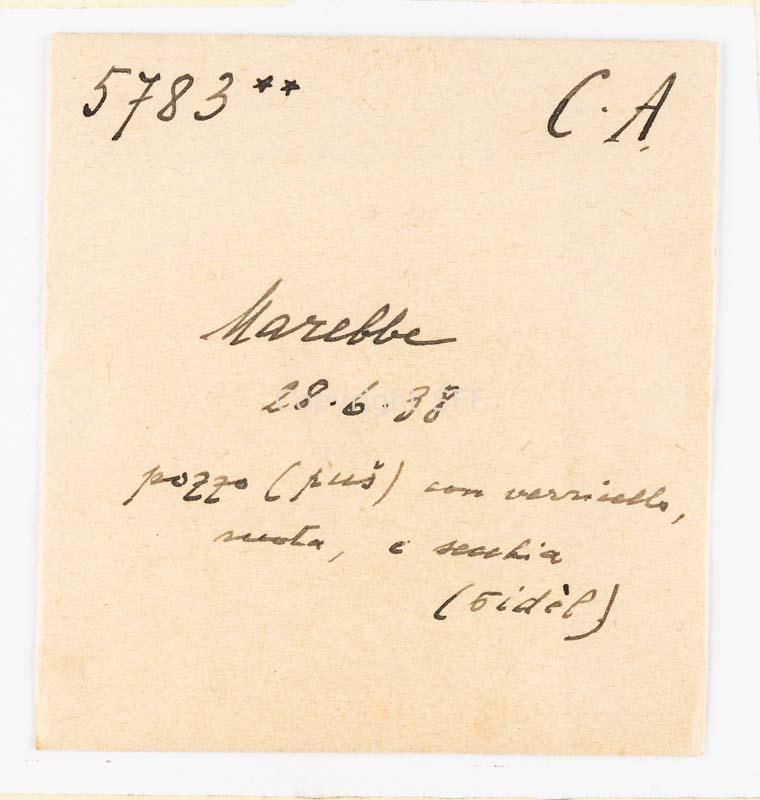 5783**
C. A.
Marebbe
28.6.38
pozzo (puš) con verricello,
ruota, e secchia
(sidèl)